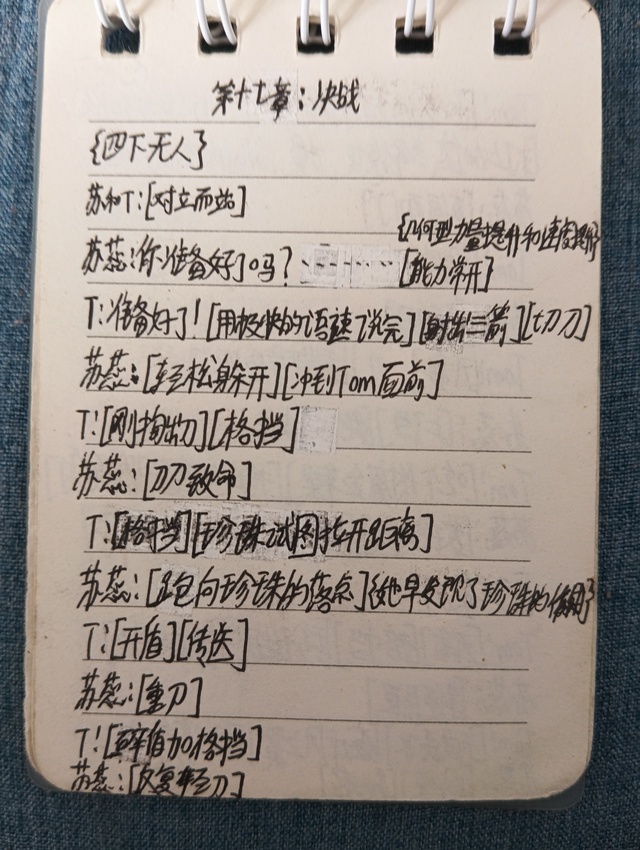 第十七章：决战
{四下无人}
苏和T:[对立而站]
{几何型力量提升和速度提升}
苏蕊:你准备好了吗？------[能力常开]
T:准备好了！[用极快的语速说完][射出三箭][切刀]
苏蕊:[轻松躲开][冲到Tom面前]
T:[刚掏出刀][格挡]
苏蕊:[刀刀致命]
T:[格挡][珍珠试图拉开距离]
苏蕊:[跑向珍珠的落点]{她早发现了珍珠的作用}
T:[开盾][传送]
苏蕊:[重刀]
T:[碎盾加格挡]
苏蕊:[反复轻刀]